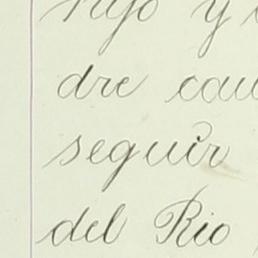 hijo y
dre cau
seguir
del Rio